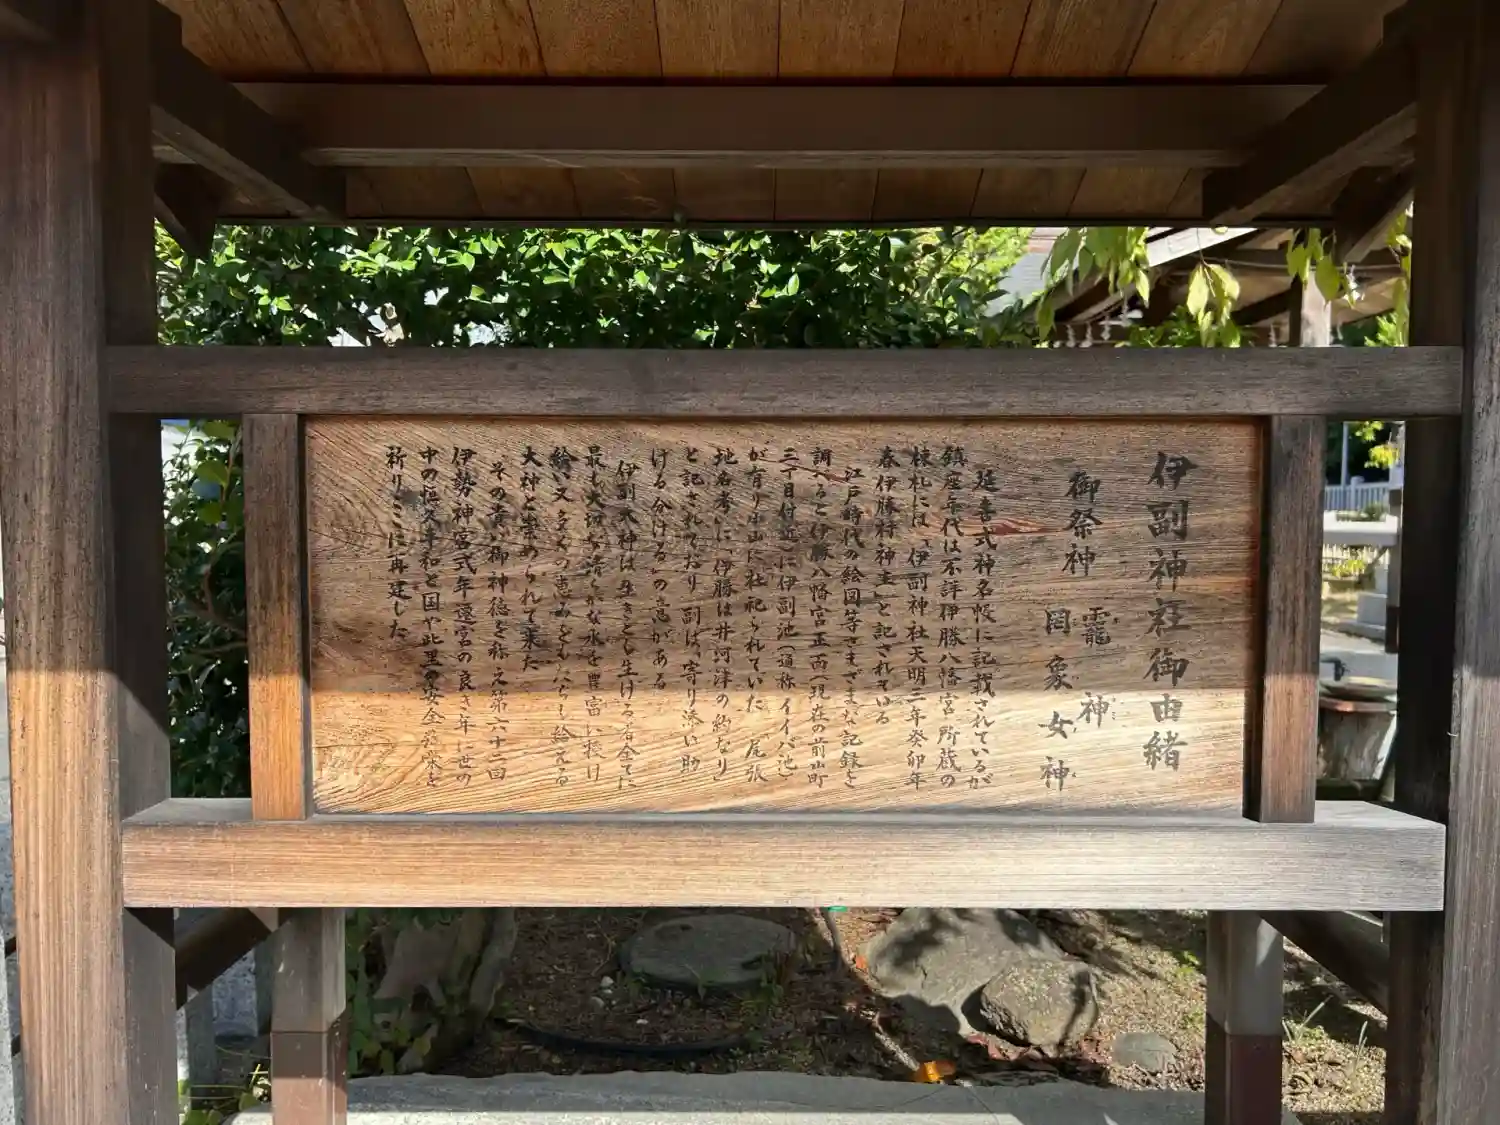 伊副神社御由緒
御祭神 龗神
罔象女神
延喜式神名帳に記載されているが
鎮座年代は不詳伊勝八幡宮所蔵の
棟札には「伊副神社天明三年癸卯年
春伊藤村神主」と記されている
江戸時代の絵図等さまざまな記録を
調べると伊勝八幡宮正西(現在の前山町
三丁目付近)に伊副池(通称イイバ池)
が有り小山に社祀られていた『尾張
地名考』に「伊勝は井河津の約なり」
と記されており副は、寄り添い助
ける分ける」の意がある
伊副大神は生きとし生ける者全てに
最も大切な清らかな水を豊富に授け
給い又多くの恵みをもたらし給える
大神と崇められて来た
その貴い御神徳を称え第六十二回
伊勢神宮式年遷宮の良き年に世の
中の恒久平和と国や此里の安全発栄を
祈りここに再建した